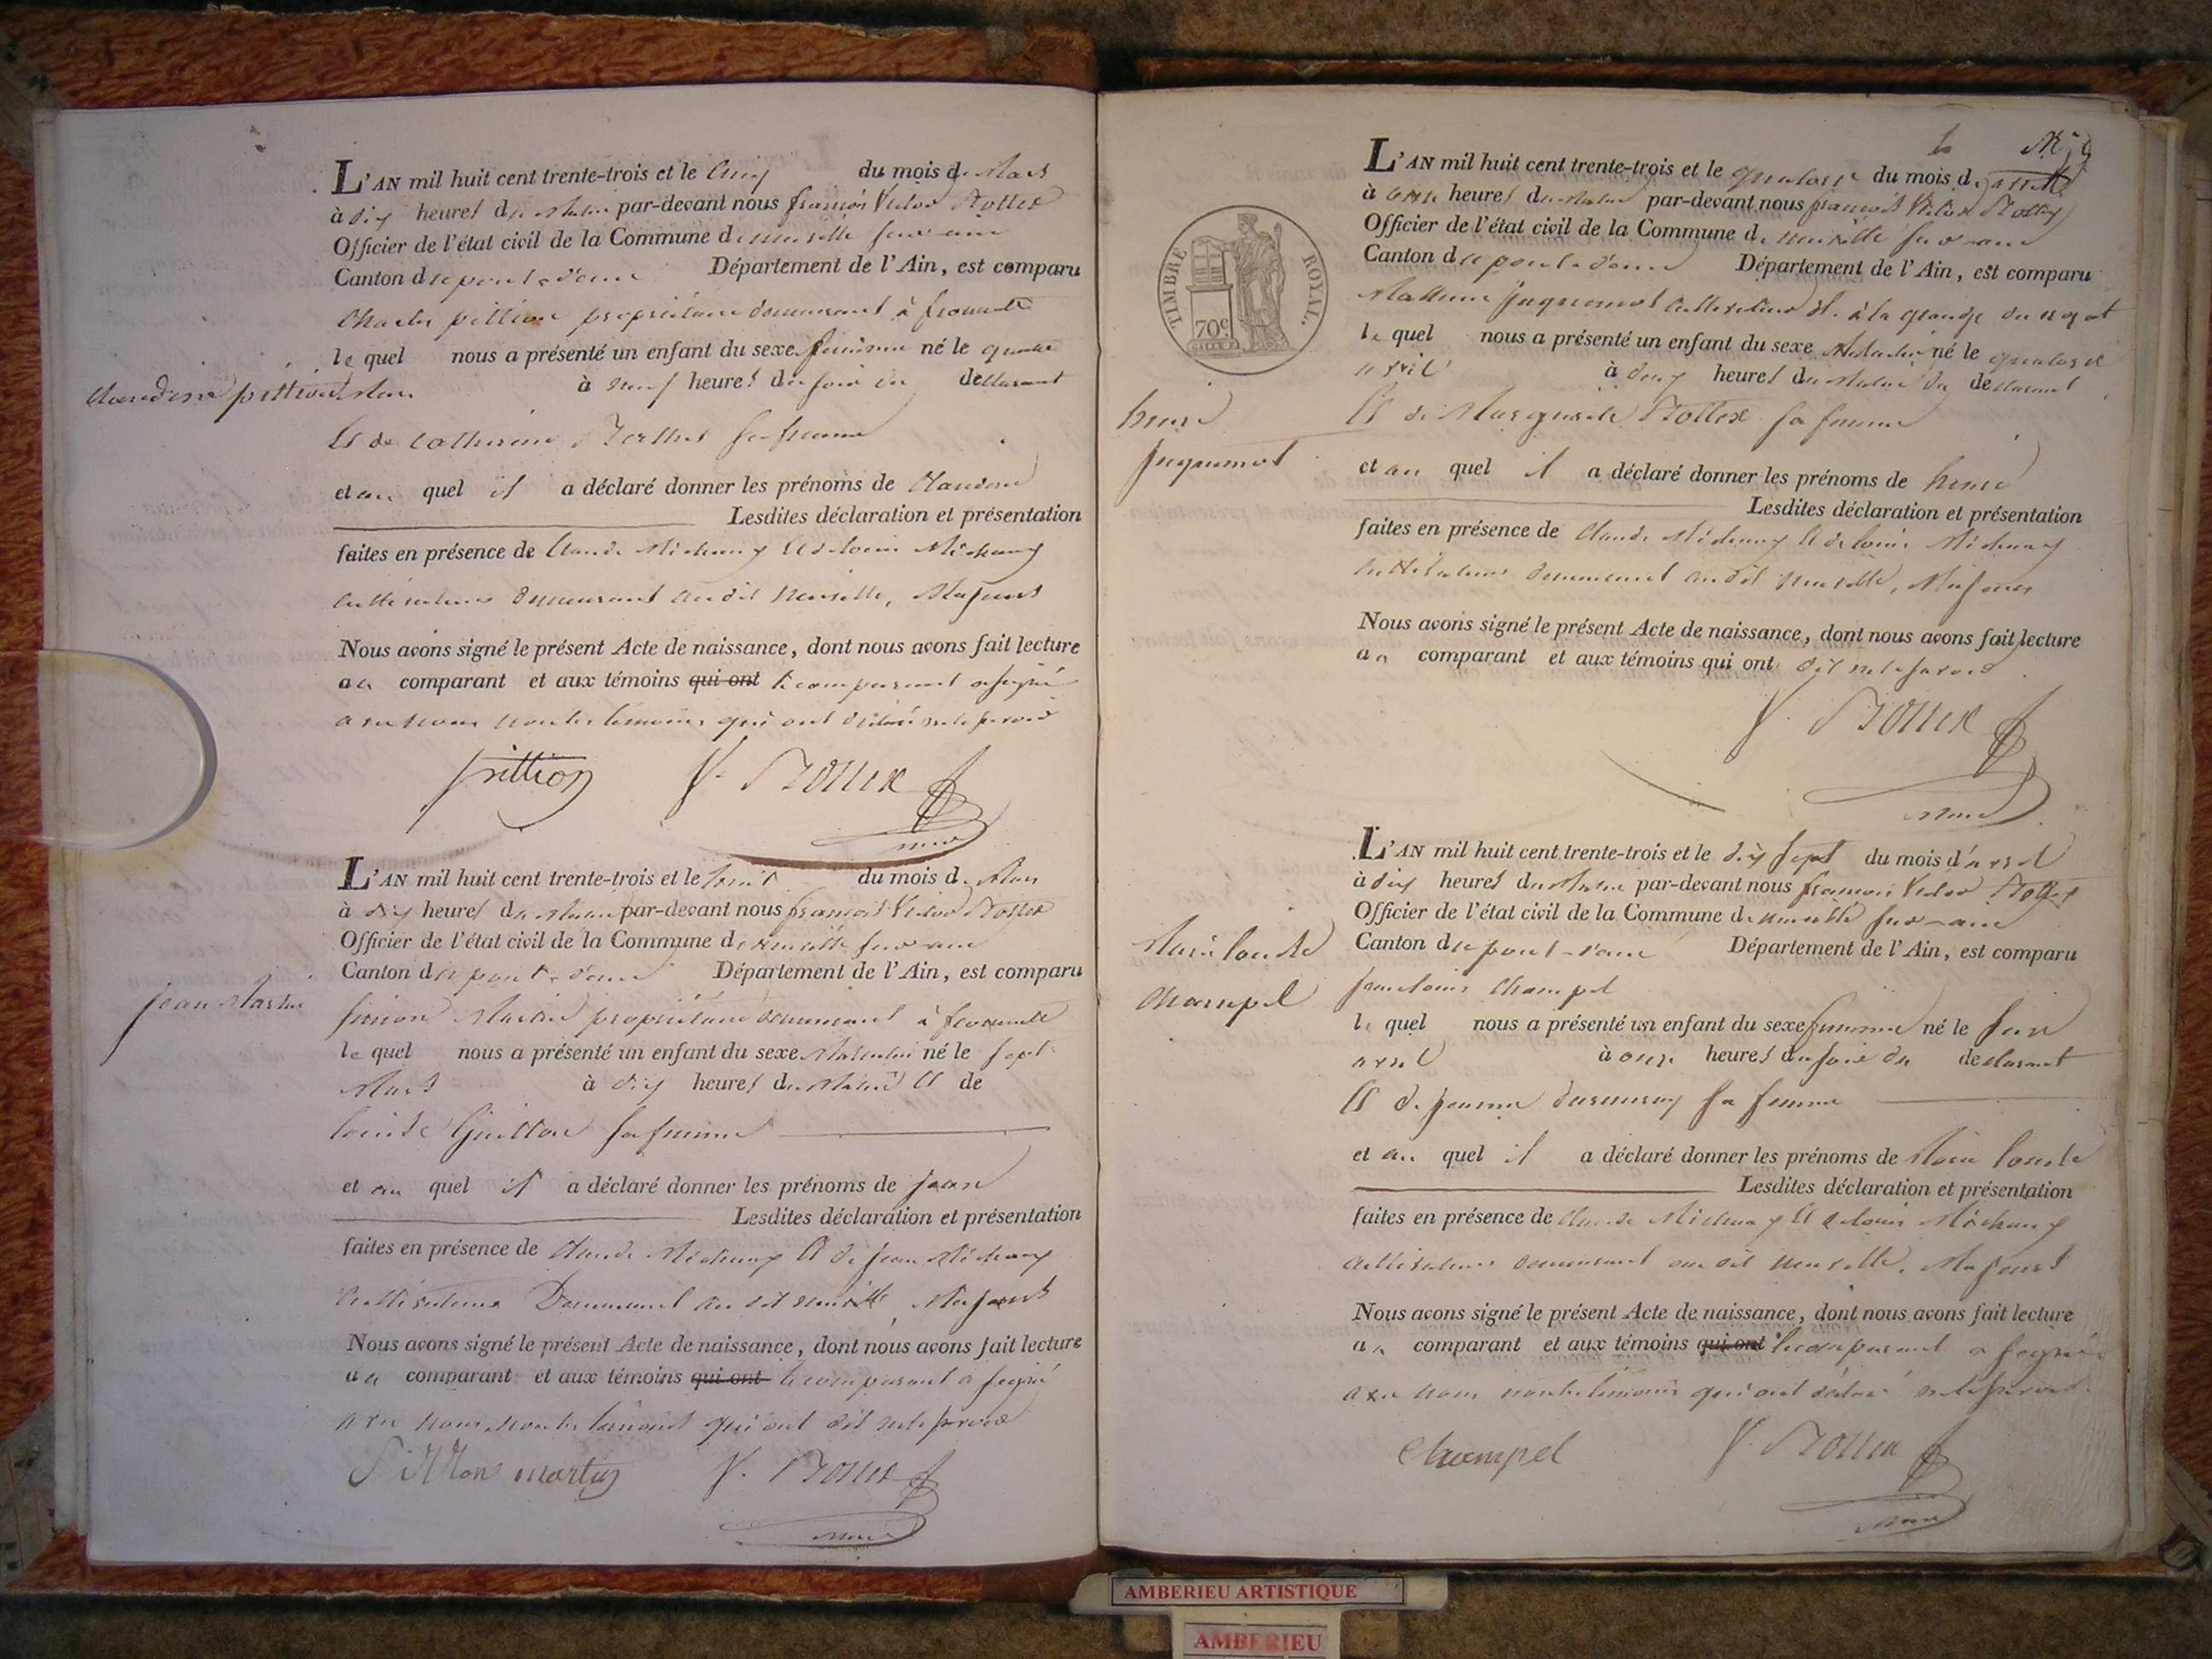 L'AN mil huit cent trente-trois et le cinq du mois de Mars
à dix heures du Matin par-devant nous françois Victor Bollex
Officier de l'état civil de la Commune de neuville sur ain
Canton de pont d'ain Département de l'Ain, est comparu
Charles pittion propriétaire demeurant à fromente
lequel nous a présenté un enfant du sexe feminin né le quatre
Claudine pittion
Mars à neuf heures du soir du declarant
Et de Catherine sa femme
et au quel il a déclaré donner les prénoms de Claudine
Lesdites déclaration et présentation
faites en présence de Claude Michauy et de louis Michauy
cultivateurs demeurant audit Neuville, Majeurs
Nous avons signé le présent Acte de naissance, dont nous avons fait lecture
au comparant et aux témoins qui ont le comparant a signé
avec nous non les témoins qui ont déclaré ne le savoir
pittion V. Bollex
L'AN mil huit cent trente-trois et le huit du mois de Mars
à dix heures du Matin par-devant nous françois Victor Bollex
Officier de l'état civil de la Commune de neuville sur ain
Canton de pont d'ain Département de l'Ain, est comparu
jean Martin
simon Martin propriétaire demeurant à fromente
lequel nous a présenté un enfant du sexe Masculin né le sept
Mars à dix heures du Matin Et de
louise Guitton sa femme
et au quel il a déclaré donner les prénoms de jean
Lesdites déclaration et présentation
faites en présence de Claude Michauy Et de jean Michauy
cultivateurs Demeurant au dit neuville Majeurs
Nous avons signé le présent Acte de naissance, dont nous avons fait lecture
au comparant et aux témoins qui ont le comparant a signé
avec nous, non les temoins qui ont dit ne le savoir
martin V. Bollex
L'AN mil huit cent trente-trois et le quatorze du mois d'avril
à onze heures du Matin par-devant nous françois Victor Bollex
Officier de l'état civil de la Commune de neuville sur ain
Canton de pont d'ain Département de l'Ain, est comparu
TIMBRE ROYAL.
70c
juquemot cultivateur à la grange du
lequel nous a présenté un enfant du sexe Masculin né le quatorze
avril à deux heures du Matin du declarant
henri
juquemot
Et de Marguerite Bollex sa femme
et au quel il a déclaré donner les prénoms de henri
Lesdites déclaration et présentation
faites en présence de Claude Michauy Et de louis Michauy
cultivateurs demeurant audit neuville, Majeurs
Nous avons signé le présent Acte de naissance, dont nous avons fait lecture
au comparant et aux témoins qui ont dit ne le savoir
V. Bollex
L'AN mil huit cent trente-trois et le dix sept du mois d'avril
à dix heures du Matin par-devant nous françois Victor Bollex
Officier de l'état civil de la Commune de neuville sur ain
Marie louise
Champel
Canton de pont d'ain Département de l'Ain, est comparu
jean louis Champel
lequel nous a présenté un enfant du sexe feminin né le seize
avril à onze heures du soir du declarant
Et de jeanne sa femme
et au quel il a déclaré donner les prénoms de Marie louise
Lesdites déclaration et présentation
faites en présence de Claude Michauy Et de louis Michauy
cultivateurs demeurant au dit neuville, Majeurs
Nous avons signé le présent Acte de naissance, dont nous avons fait lecture
au comparant et aux témoins qui ont le comparant a signé
avec nous non les temoins qui ont déclaré ne le savoir
Champel V. Bollex
AMBERIEU ARTISTIQUE
AMBERIEU